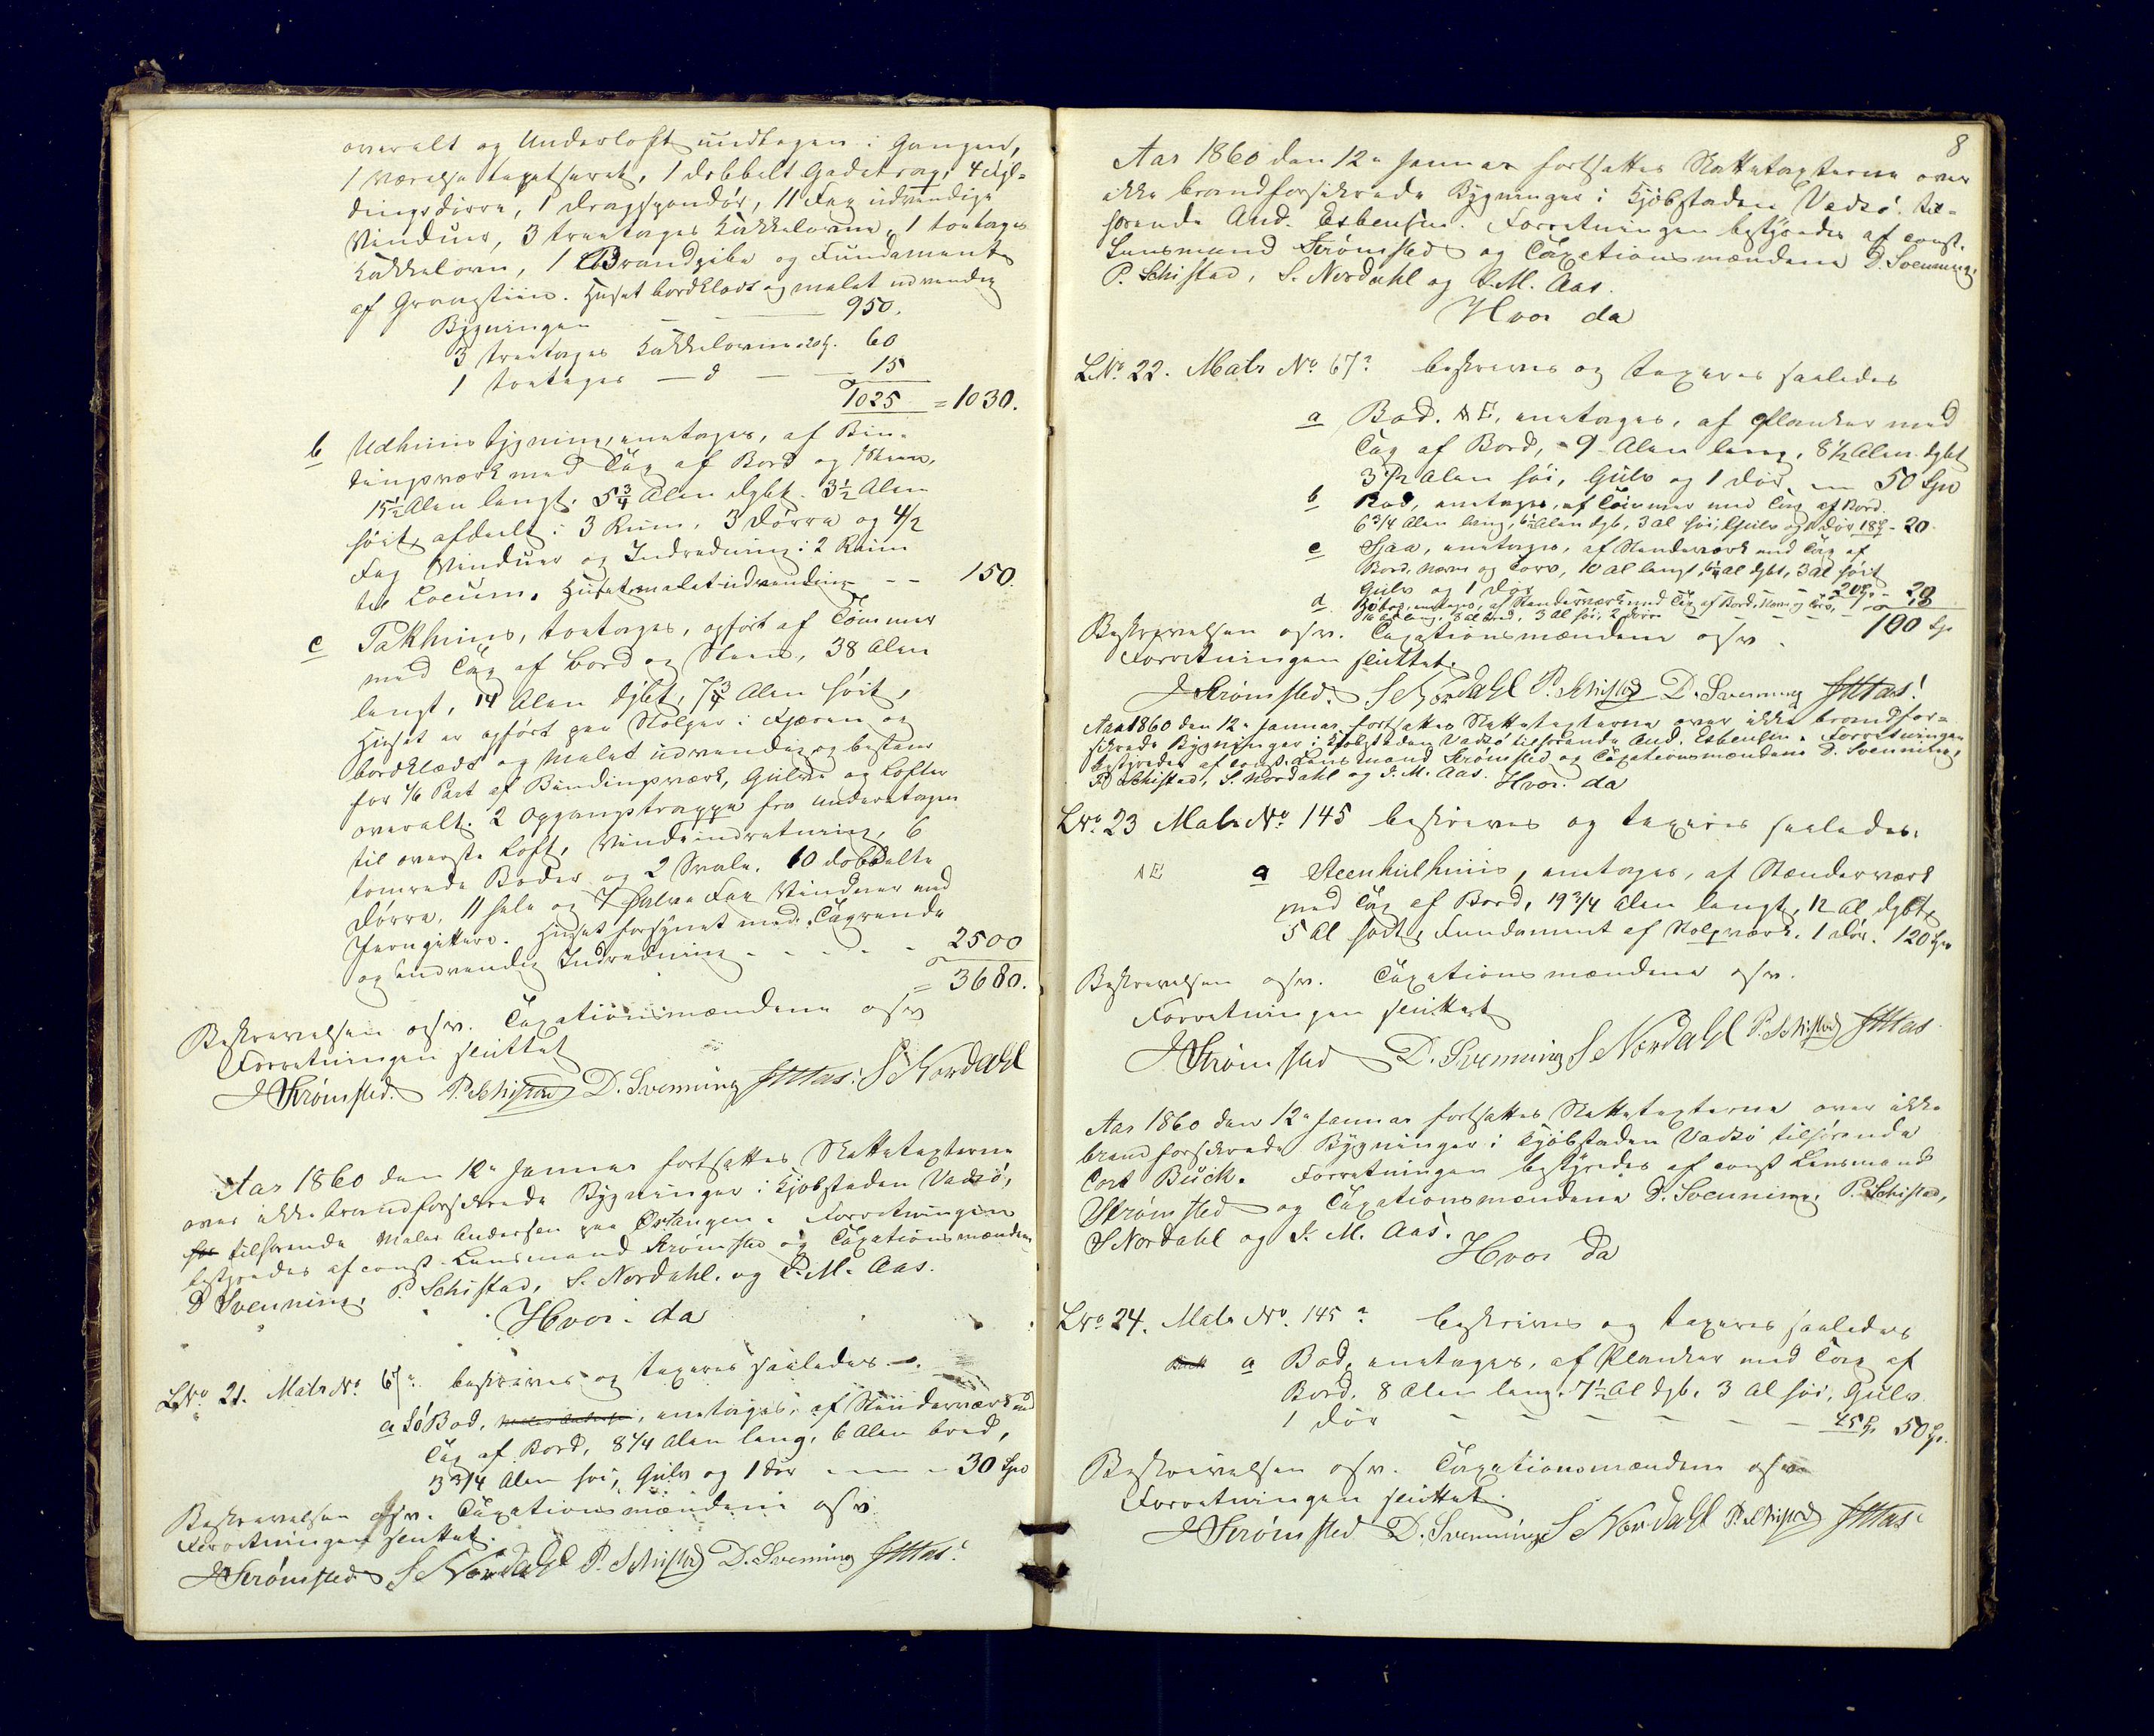 overalt og Underloft undtagen i Gangen,
1 Værelse tapetseret, 1 dobbelt Gadetrap, 4 Fyl-
dingsdørre, 1 Dragspondør, 11 Fag udvendige
Vinduer, 3 treetages Kakkelovne, 1 toetages
Kakkelovn, 1 Brandpibe og Fundament
af Graasteen. Huset bordklædt og malet udvendig
Bygningen 950.
3 treetages Kakkelovne a 20 60
1 toetages — d — 15
1025 = 1030.
b Udhuusbygning, eenetages, af Bin-
dingsværk med Tag af Bord og Steen,
15½ Alen langt, 5¾ Alen dybt, 3½ Alen
høit, afdeelt i 3 Rum, 3 Dørre og 4½
Fag Vinduer og Indredning i 2 Rum
til Locum. Huset malet udvendig - - 150.
c Pakhuus, toetages, opført af Tømmer
med Tag af Bord og Steen, 38 Alen
langt, 14 Alen dybt, 7¾ Alen høit,
Huset er opført paa Stolper i Fjæren og
bordklædt og malet udvendig og bestaaer
for 1/6 Part af Bindingsværk, Gulve og Lofter
overalt. 2 Opgangstrapper fra underetagen
til øverste Loft, Vindeindretning, 6
tømrede Boder og 2 Svale. 10 dobbelte
Dørre, 11 hele og 7 halve Fag Vinduer med
Jerngittere. Huset forsynet med Tagrende
og indvendig Indredning - - - - 2500
= 3680.
Beskrivelsen osv. Taxationsmændene osv
Forretningen sluttet
J Strømsted. P. Schistad D. Svenning JMAas. S Nordahl
Aar 1860 den 12e Januar fortsattes Skattetaxterne
over ikke brandforsikrede Bygninger i Kjøbstaden Vadsø,
tilhørende Maler Andersen paa Østangen. Forretningen
bestyredes af const. Lensmand Strømsted og Taxationsmændene
D Svenning, P. Schistad, S. Nordahl. og J. M. Aas.
Hvor da
LNo 21. Matr No 67a. beskrives og taxeres saaledes.
a Sø Bod, eenetages, af Stænderværk med
Tag af Bord, 8¼ Alen lang, 6 Alen bred,
3¾ Alen høi, Gulv og 1 Dør - - - 30 Spd
Beskrivelsen osv. Taxationsmændene osv
Forretningen sluttet.
J Strømsted S Nordahl P. Schistad D. Svenning JMAas.
8
Aar 1860 den 12e Januar fortsattes Skattetaxterne over
ikke brandforsikrede Bygninger i Kjøbstaden Vadsø til-
hørende And. Esbensen. Forretningen bestyredes af const.
Lensmand Strømsted og Taxationsmændene D. Svenning,
P. Schistad, S. Nordahl og J. M. Aas.
Hvor da
LNo. 22. Matr No. 67a beskrives og taxeres saaledes
a Bod. AE, eenetages, af Planker med
Tag af Bord, 9 Alen lang, 8½ Alen dybt
3½ Alen høi, Gulv og 1 Dør 50 Spd
b Bod, eenetages, af Tømmer med Tag af Bord.
6¾ Alen lang, 6½ Alen dyb, 3 Al høi, Gulv og 1 Dør 18 - 20
c Sjaa, eenetages, af Stenderværk med Tag af
Bord, Næver og Torv, 10 Al langt, 6¼ Al dybt, 3 Al høit
Gulv og 1 Dør 20 - 20
d eenetages, af Stenderværk med Tag af Bord, Næver og Torv,
lang, 8 Al bred, 3 Al høi, 2 Dørre - - - - 10
Beskrivelsen osv. Taxationsmændene osv. 100 Spd
Forretningen sluttet.
J Strømsted. S Nordahl P. Schistad D. Svenning JMAas.
Aar 1860 den 12e Januar fortsattes Skattetaxterne over ikke brandfor-
sikrede Bygninger i Kjøbstaden Vadsø tilhørende And. Esbensen. Forretningen
bestyredes af const. Lensmand Strømsted og Taxationsmændene D. Svenning,
P Schistad, S. Nordahl og J. M. Aas. Hvor da
LNo. 23 Matr No. 145 beskrives og taxeres saaledes.
AE a Steenkulhuus, eenetages, af Stænderværk
med Tag af Bord, 19¾ Alen langt, 12 Al dybt,
5 Al høit, Fundament af Stolpværk. 1 Dør. 120 Spd
Beskrivelsen osv. Taxationsmændene osv.
Forretningen sluttet
J Strømsted D. Svenning S Nordahl P. Schistad JMAas
Aar 1860 den 12e Januar fortsattes Skattetaxterne over ikke
brandforsikrede Bygninger i Kjøbstaden Vadsø tilhørende
Cort Buck. Forretningen bestyredes af const Lensmand
Strømsted og Taxationsmændene D. Svenning, P. Schistad,
S Nordahl og J. M. Aas.
Hvor da
LNo 24. Matr No. 145a beskrives og taxeres saaledes
a Bod, eenetages, af Planker med Tag af
Bord. 8 Alen lang, 7½ Al dyb, 3 Al høi, Gulv
1 Dør - - - - - - 45 Sp 50 Sp.
Beskrivelsen osv. Taxationsmændene osv
Forretningen sluttet.
J Strømsted D. Svenning S Nordahl P. Schistad JMAas